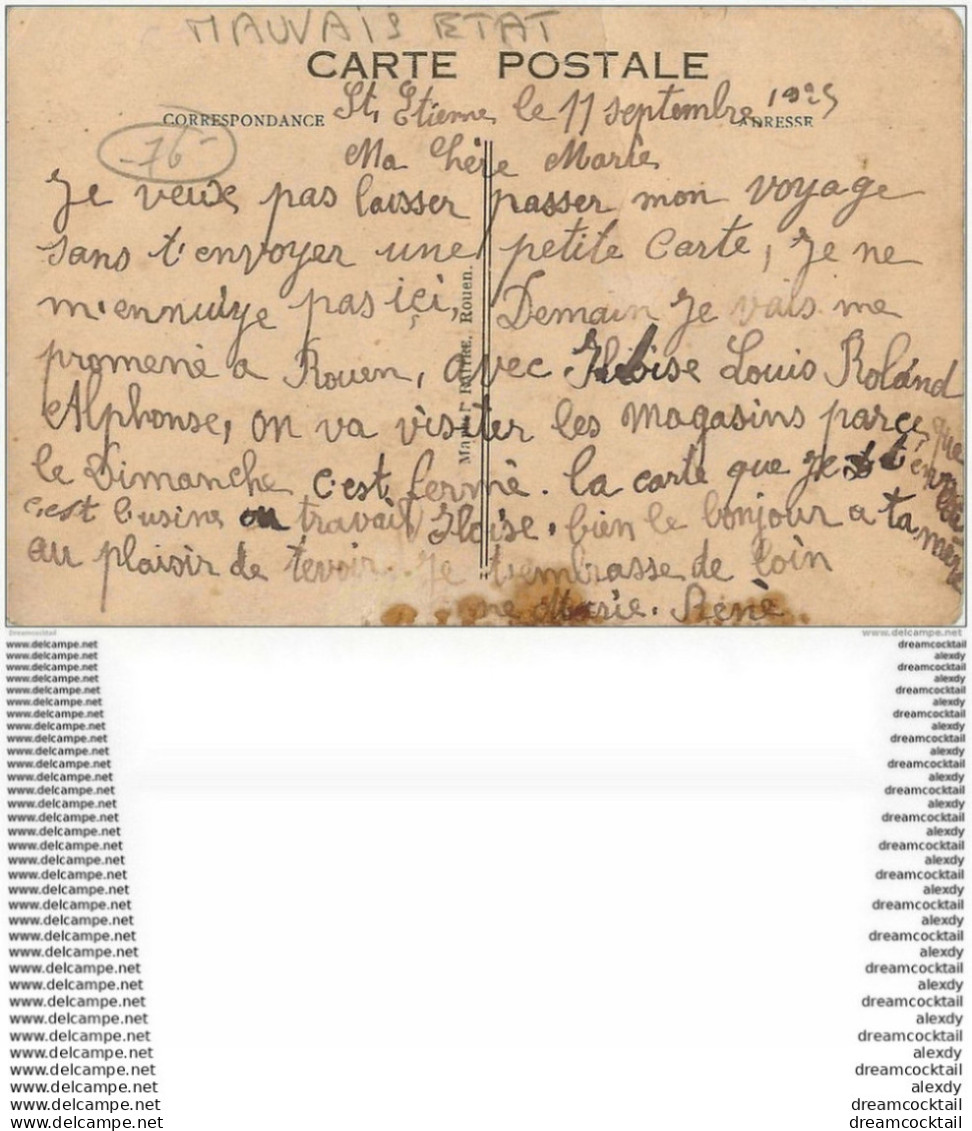 MAUVAIS ETAT
CARTE POSTALE
CORRESPONDANCE
ADRESSE
-76-
St Etienne le 11 septembre 1925
Ma Chère Marie
Je veux pas laisser passer mon voyage
sans t'envoyer une petite Carte, Je ne
m'ennuiye pas içi, Demain Je vais me
promené a Rouen, avec Louis Roland
Alphonse, on va visiter les magasins parce que
le Dimanche c'est fermé. la carte que Je t'
c'est l'usine ou travail Iloise. bien le bonjour a ta mère
au plaisir de tevoir. Je t'embrasse de loin
Marie. Réné
Rouen.
Dreamcocktail
www.delcampe.net
www.delcampe.net dreamcocktail
www.delcampe.net alexdy
www.delcampe.net dreamcocktail
www.delcampe.net alexdy
www.delcampe.net dreamcocktail
www.delcampe.net alexdy
www.delcampe.net dreamcocktail
www.delcampe.net alexdy
www.delcampe.net dreamcocktail
www.delcampe.net alexdy
www.delcampe.net dreamcocktail
www.delcampe.net alexdy
www.delcampe.net dreamcocktail
www.delcampe.net alexdy
www.delcampe.net dreamcocktail
www.delcampe.net alexdy
www.delcampe.net dreamcocktail
www.delcampe.net alexdy
www.delcampe.net dreamcocktail
www.delcampe.net alexdy
www.delcampe.net dreamcocktail
www.delcampe.net alexdy
www.delcampe.net dreamcocktail
www.delcampe.net alexdy
www.delcampe.net dreamcocktail
www.delcampe.net alexdy
www.delcampe.net dreamcocktail
www.delcampe.net alexdy
www.delcampe.net dreamcocktail
www.delcampe.net alexdy
www.delcampe.net dreamcocktail
www.delcampe.net alexdy
www.delcampe.net dreamcocktail
www.delcampe.net alexdy
www.delcampe.net dreamcocktail
www.delcampe.net dreamcocktail